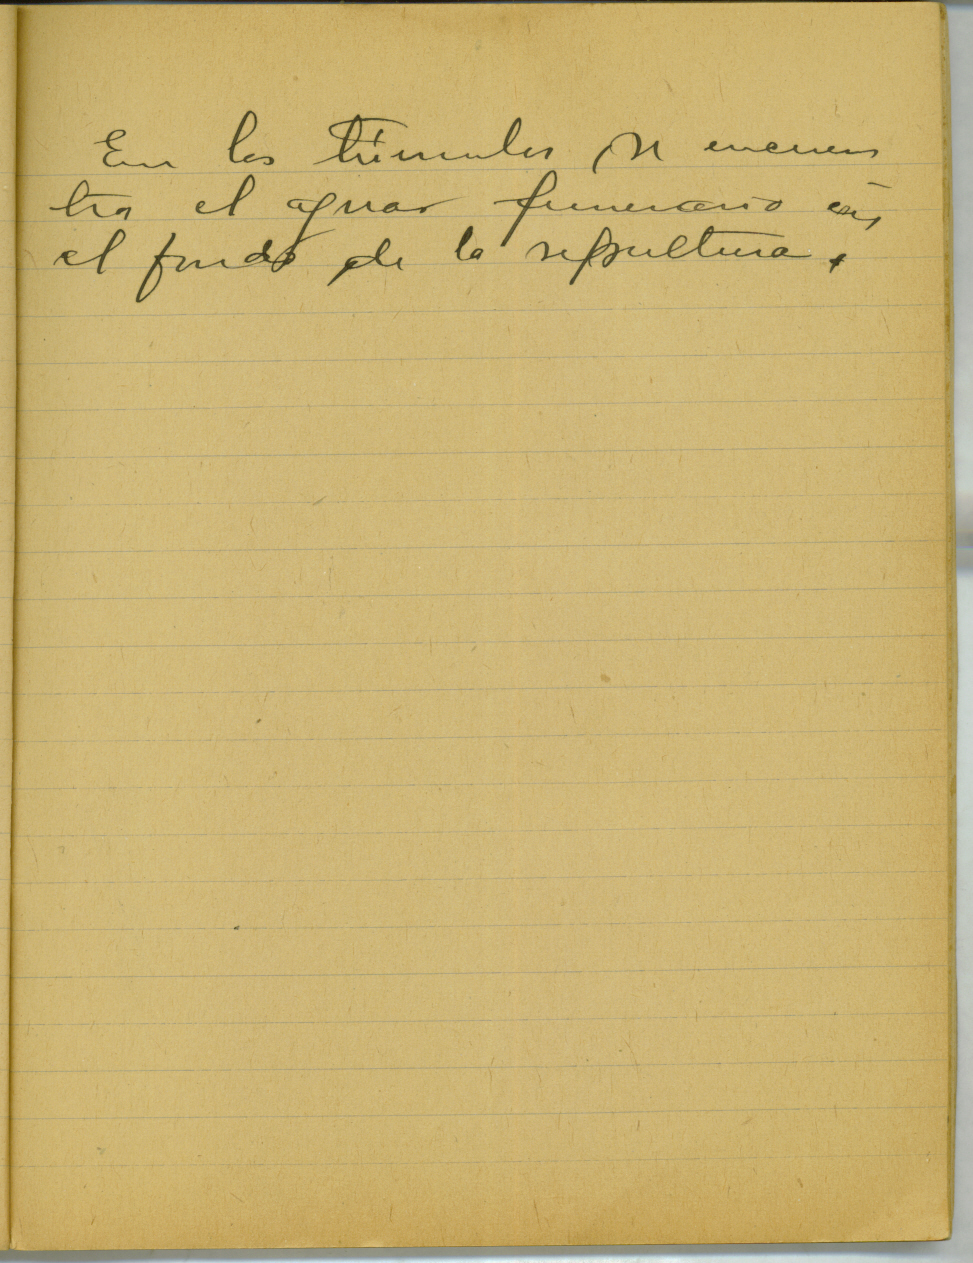 En los túmulos se encuen
tra el ajuar funerario en
el fondo de la sepultura.